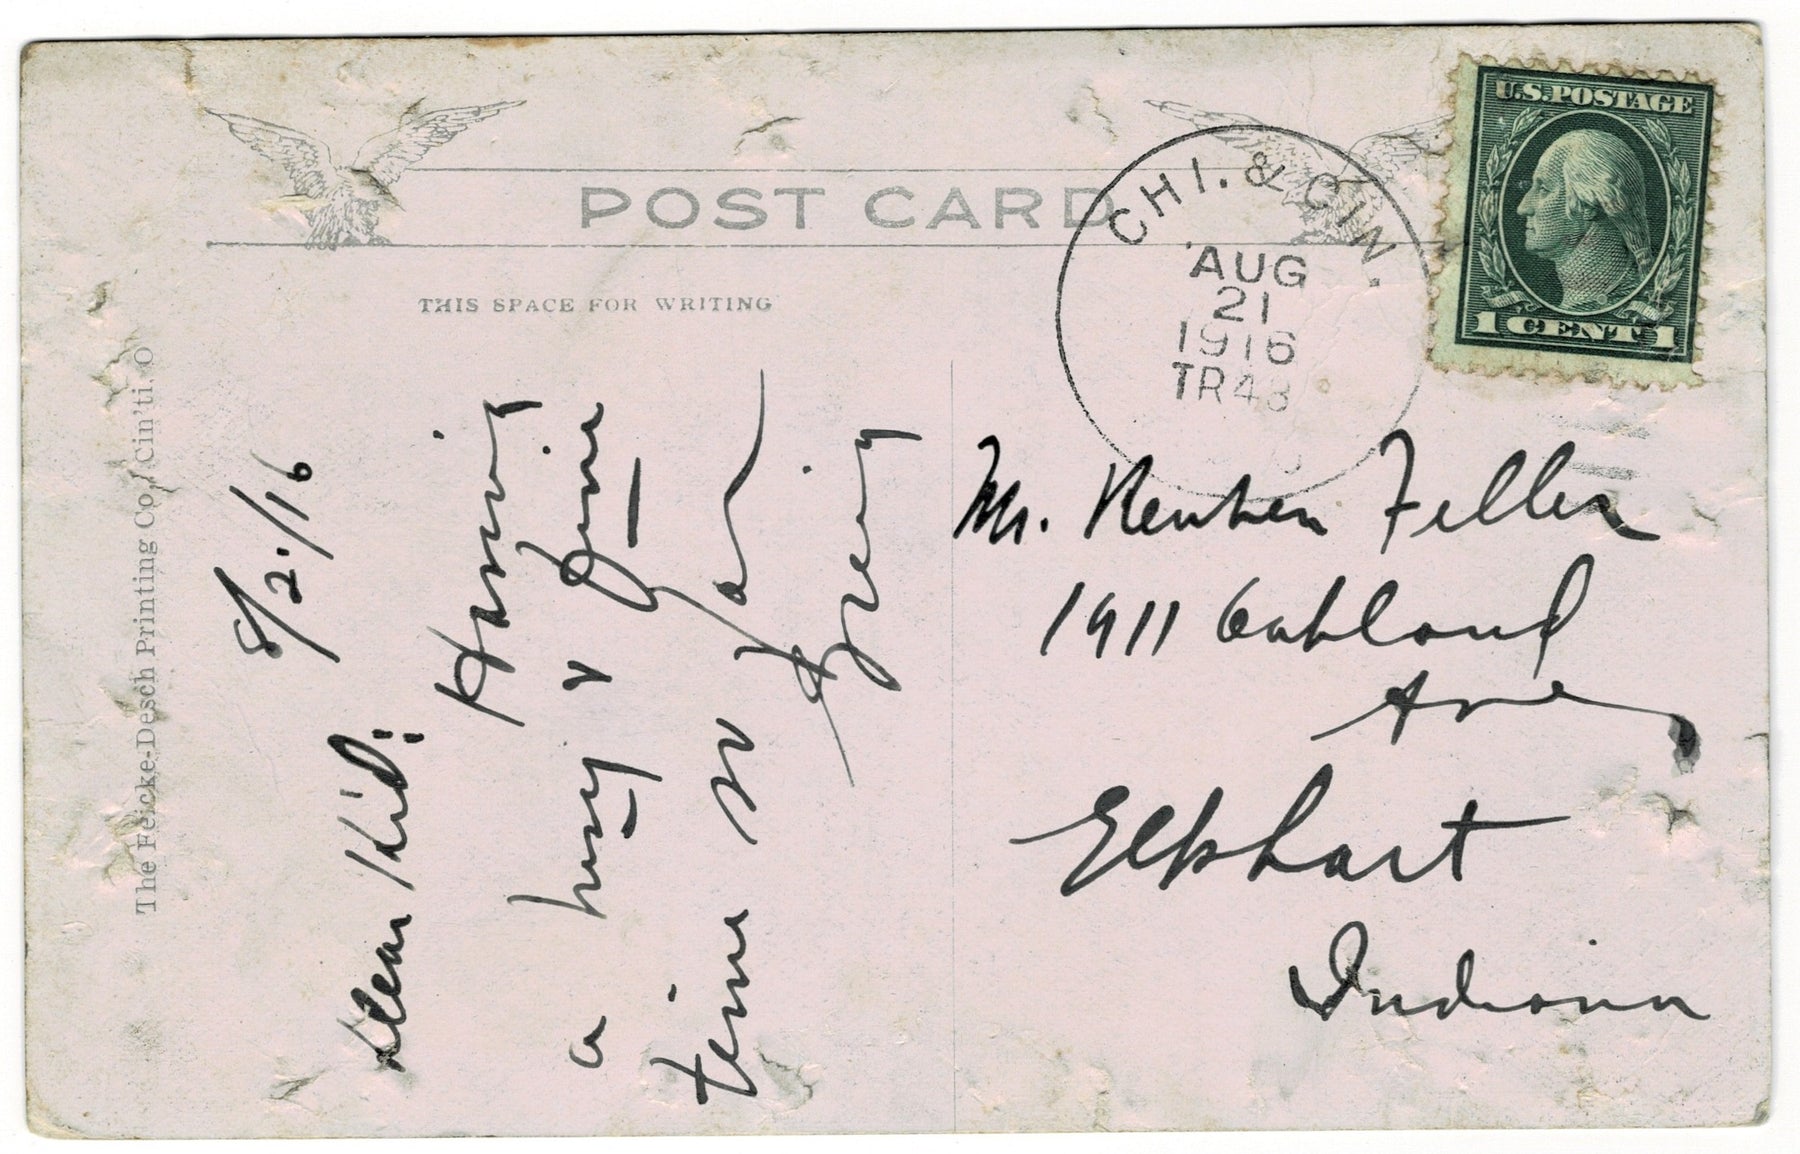 POST CARD
THIS SPACE FOR WRITING
The Feicke-Desch Printing Co. Cin'ti. O
CHI. & CIN.
AUG
21
1916
TR43
U.S. POSTAGE
1 CENT 1
8/21/16
Dear Kid:
Having
a busy & fine
time so far
Mr. Reuben Feller
1911 Oakland
Ave
Elkhart
Indiana